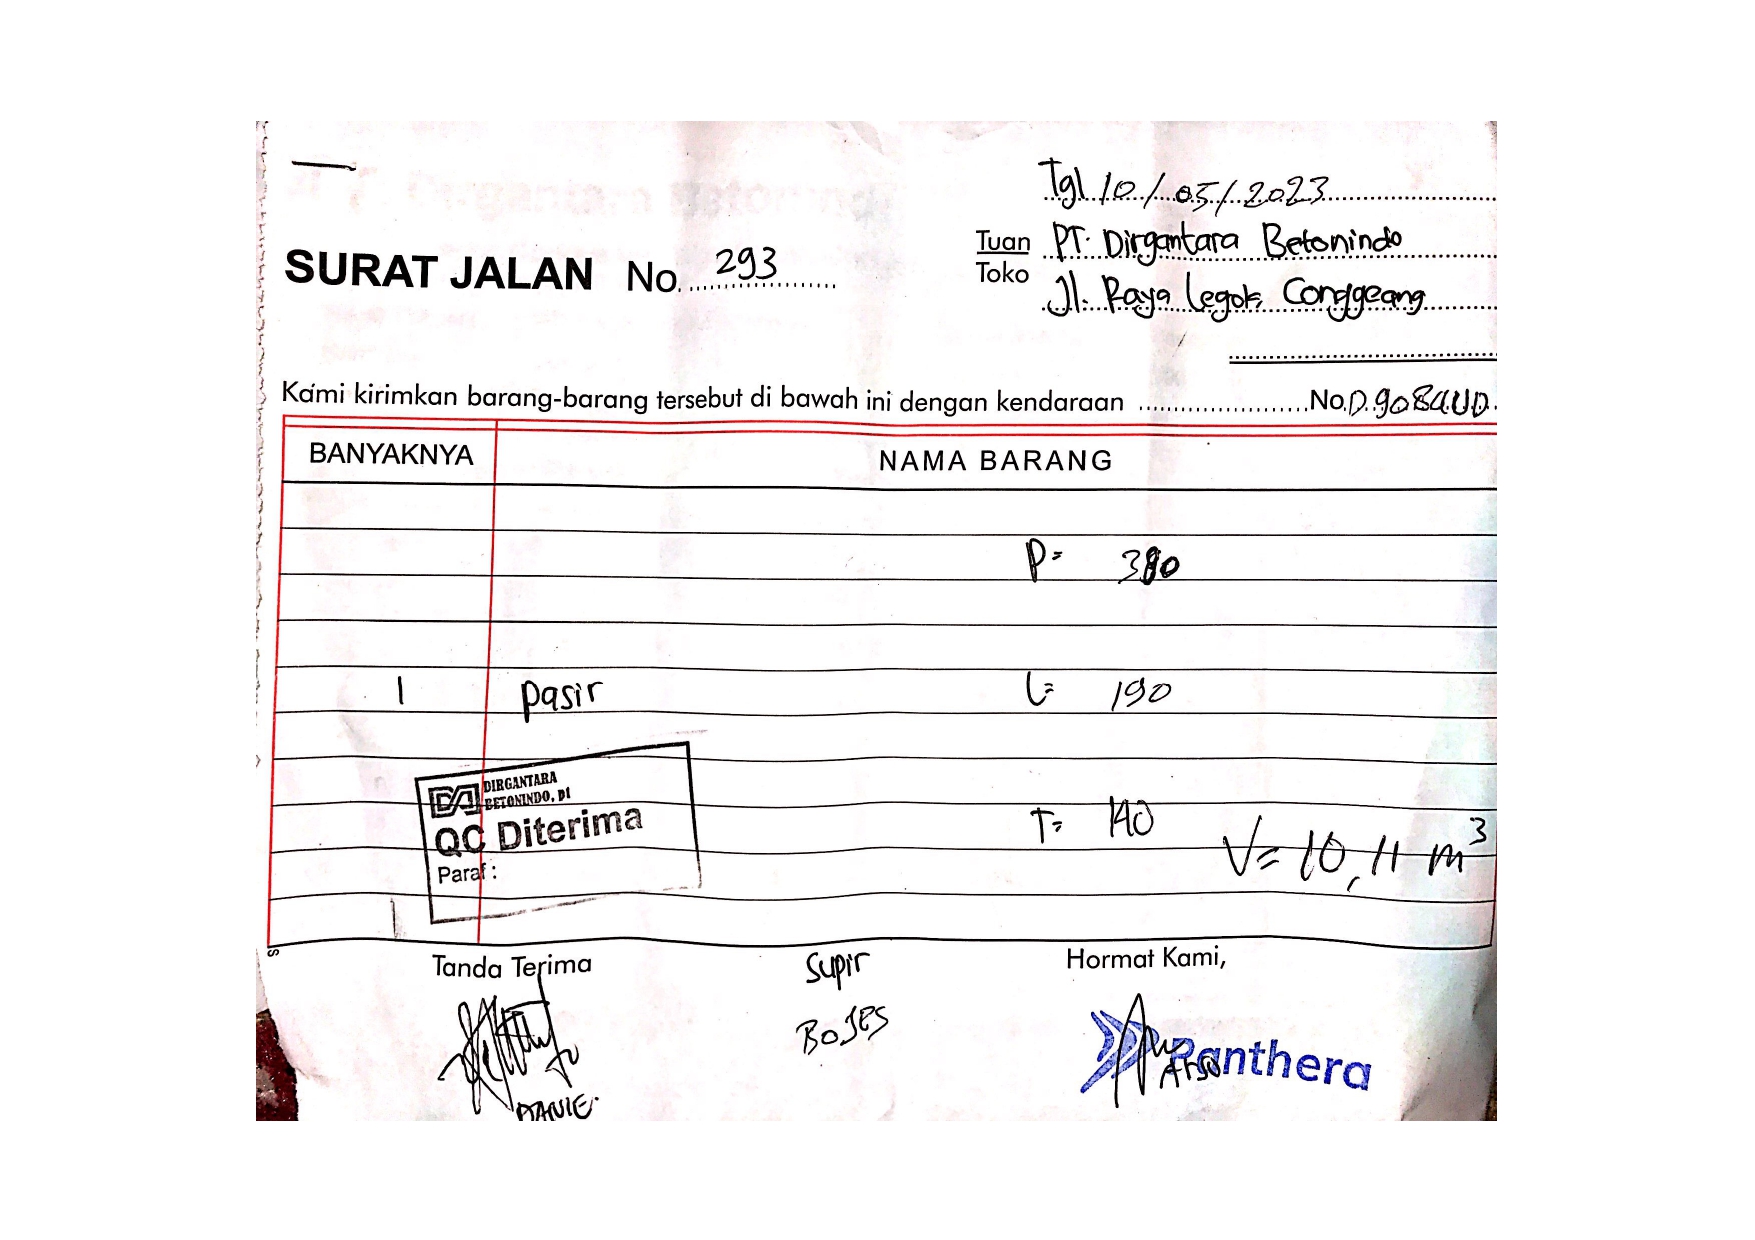 Tgl 10/05/2023
SURAT JALAN No. 293
Tuan PT. Dirgantara Betonindo
Toko Jl. Raya Legok, Conggeang
Kami kirimkan barang-barang tersebut di bawah ini dengan kendaraan No. D 9084 UD
BANYAKNYA NAMA BARANG
P= 380
1 pasir L= 190
T= 140
V= 10,11 m³
DIRGANTARA
BETONINDO, PT
QC Diterima
Paraf :
Tanda Terima Supir Hormat Kami,
BOJES
Panthera